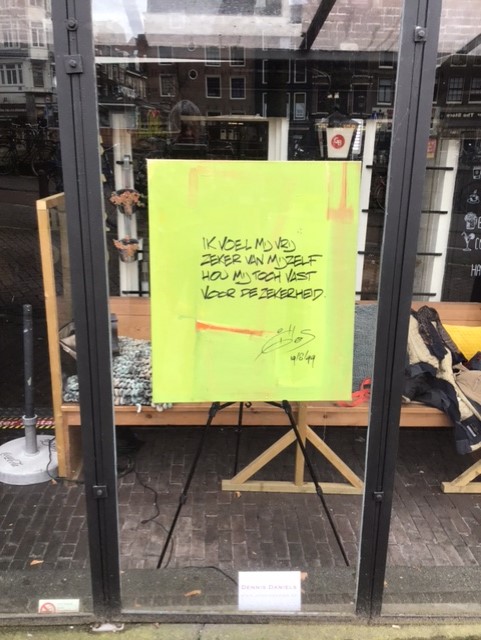 IK VOEL MIJ VRIJ
ZEKER VAN MIJZELF
HOU MIJ TOCH VAST
VOOR DE ZEKERHEID.
DENNIS DANIELS